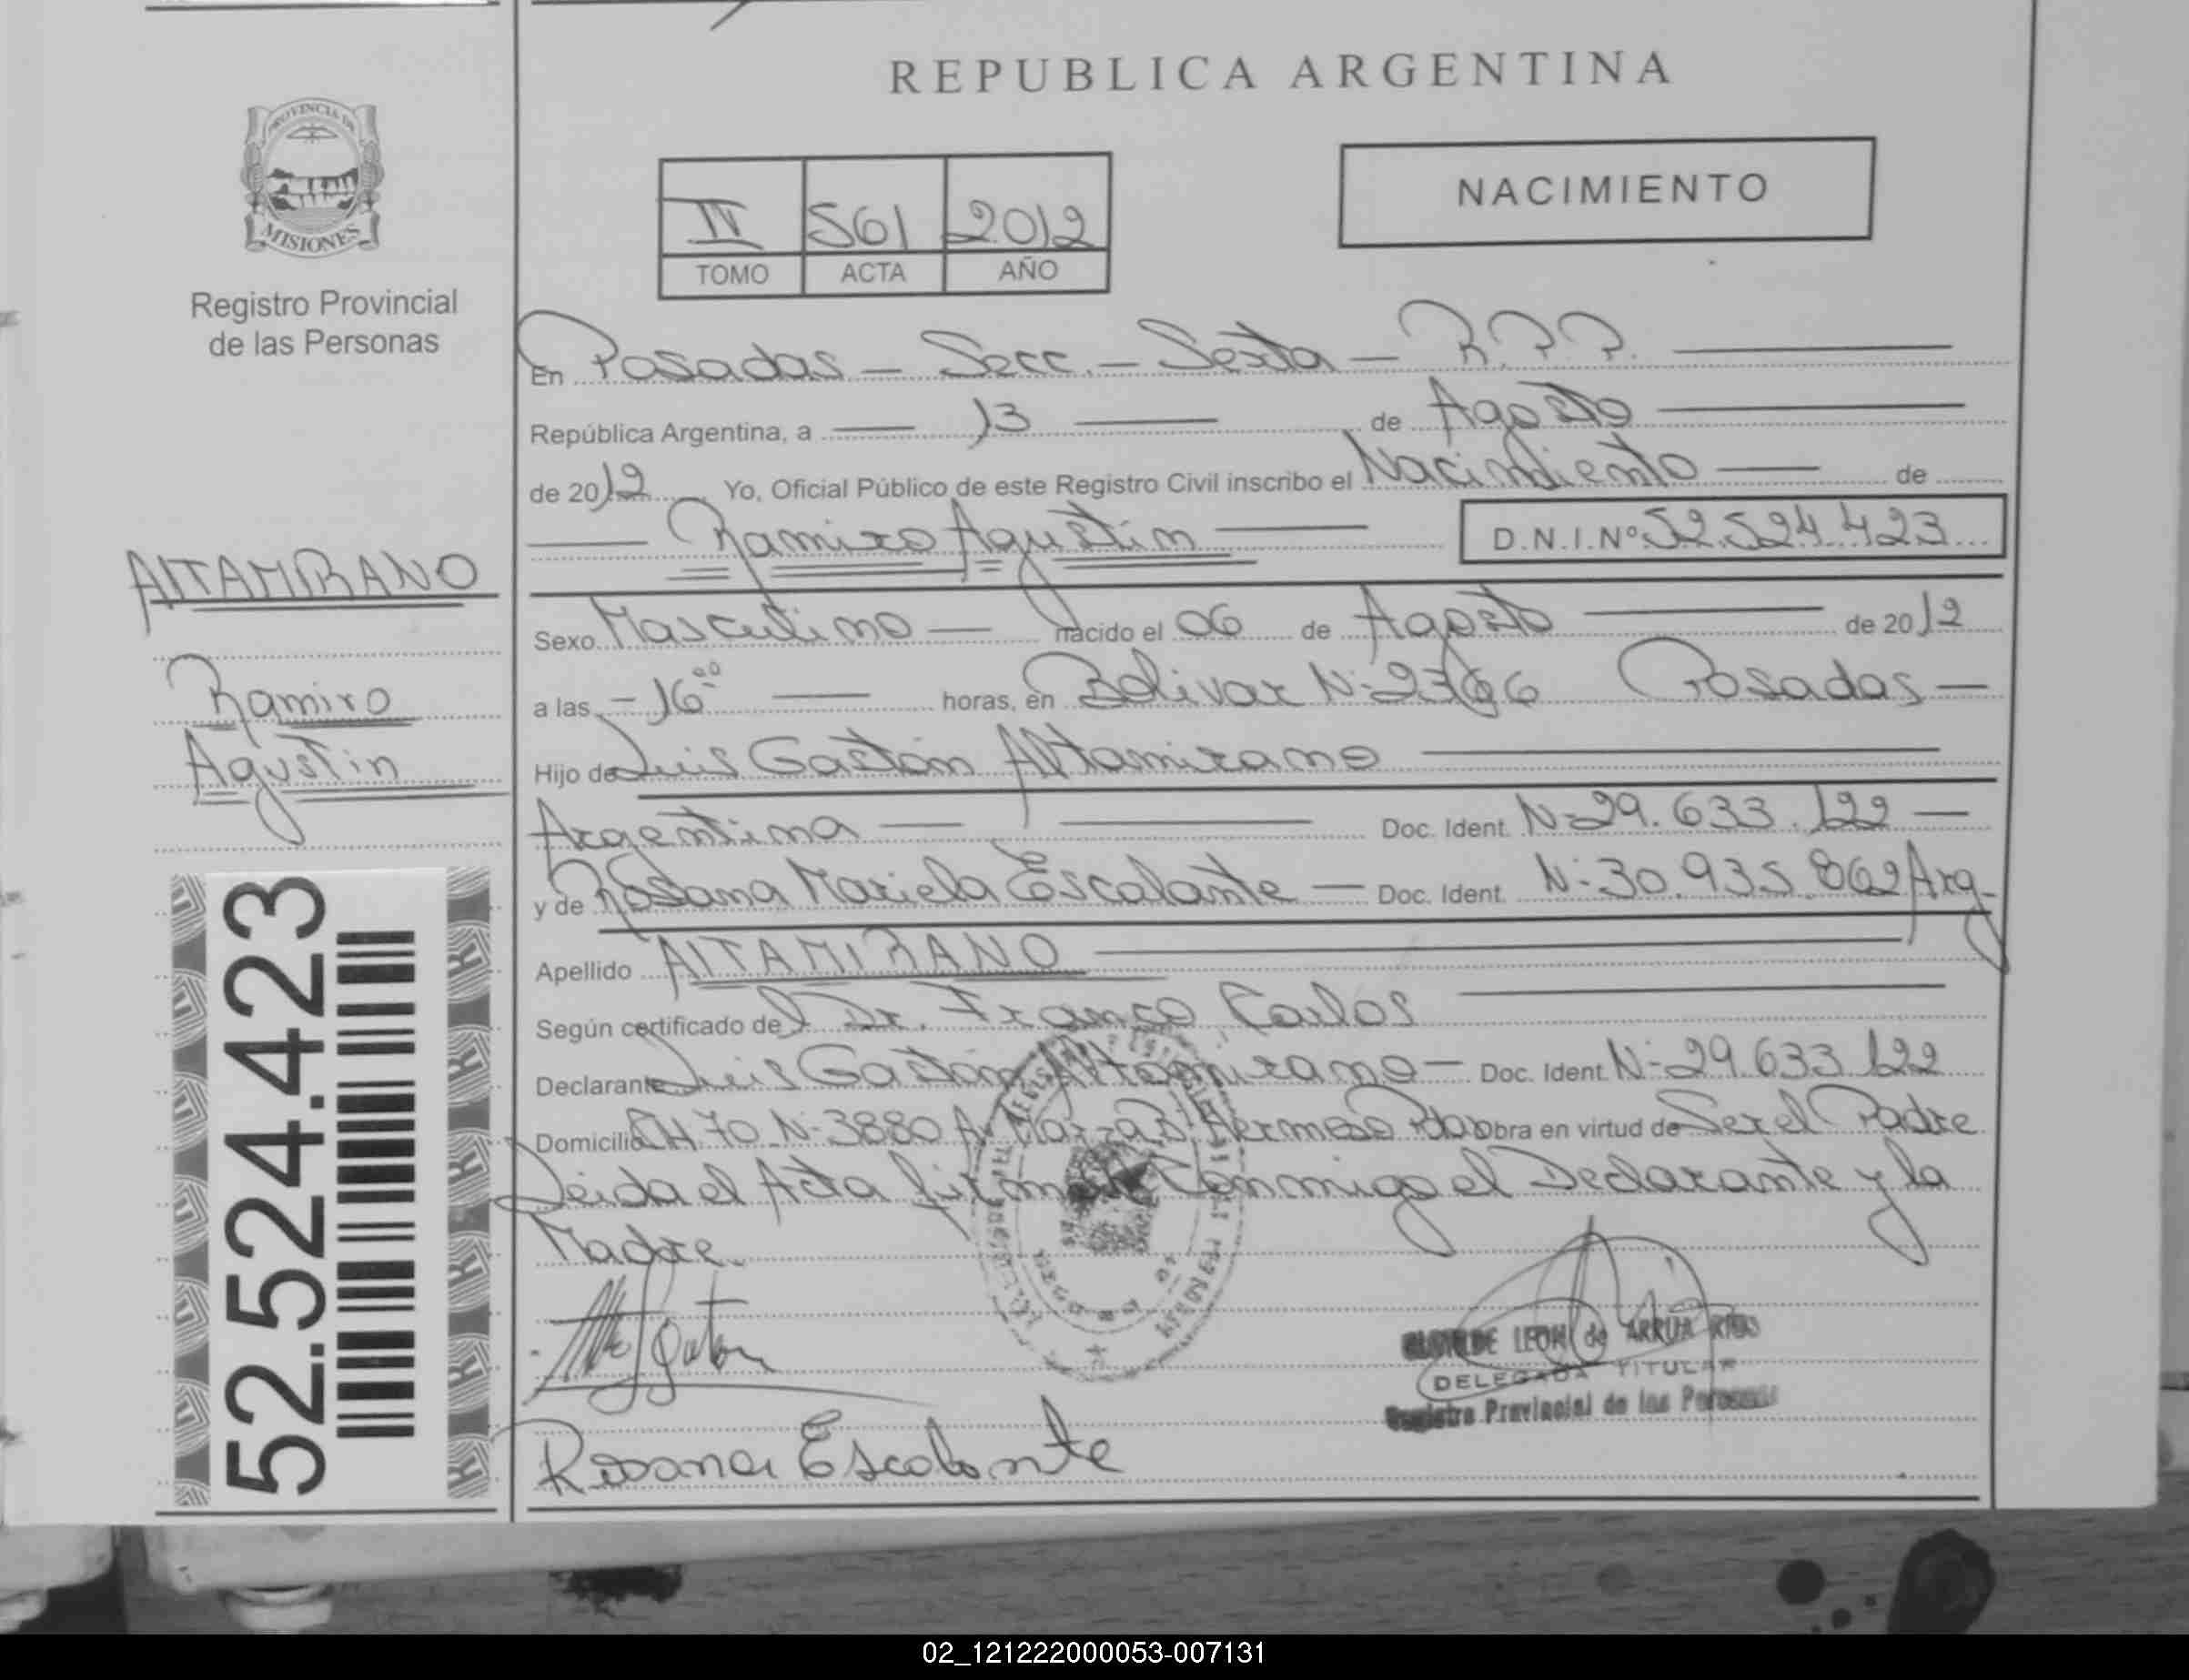 REPUBLICA ARGENTINA
PROVINCIA DE
MISIONES
Registro Provincial
de las Personas
NACIMIENTO
IV 561 2012
TOMO ACTA AÑO
En Posadas - Secc. - Sexta - R.P.P.
República Argentina, a 13 de Agosto
de 2012 Yo, Oficial Público de este Registro Civil inscribo el Nacimiento de
Ramiro Agustin D.N.I.Nº 52.524.423
ALTAMIRANO
Ramiro
Agustin
52.524.423
Sexo Masculino - nacido el 06 de Agosto de 2012
a las - 16⁰⁰ horas, en Bolivar Nº Posadas -
Hijo de Luis Gastón Altamirano
Argentina - Doc. Ident. Nº 29.633.122 -
y de Rosana Mariela Escalante - Doc. Ident. Nº 30.935.862 Arg.
Apellido ALTAMIRANO
Según certificado del Dr. Franco Carlos
Declarante Luis Gastón Altamirano - Doc. Ident. Nº 29.633.122
Domicilio CH. 70 Nº 3880 Hermoso Obra en virtud de Ser el Padre
Leida el Acta firman Conmigo el Declarante y la
Madre.
Rosana Escalante
LEON de ARRUA RIOS
DELEGADA TITULAR
Registro Provincial de las Personas
02_121222000053-007131